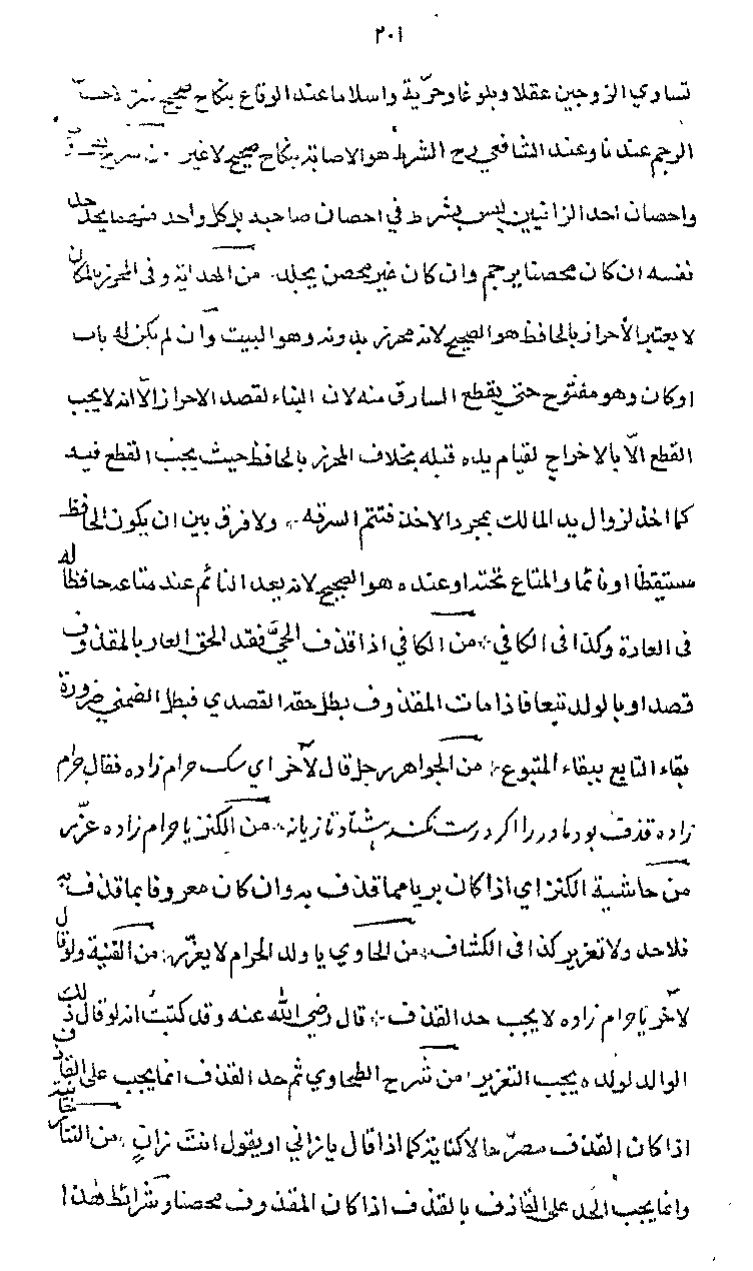 ٢٠١
تساوي الزوجين عقلا وبلوغا وحرّية واسلاما عند الوقاع بنكاح صحيح شرط
الرجم عندنا وعند الشافعي رح الشرط هو الاصابة بنكاح صحيح لا غير
واحصان احد الزانيين ليس بشرط في احصان صاحبه بل كل واحد منهما يحد حد
نفسه ان كان محصنا يرجم وان كان غير محصن يجلد. من الهداية وفى المحرز بالمكان
لا يعتبر الأحراز بالحافظ هو الصحيح لانه محرز بدونه وهو البيت وان لم يكن له باب
او كان وهو مفتوح حتى يقطع السارق منه لان البناء لقصد الاحراز الّا انه لا يجب
القطع الّا بالاخراج لقيام يده قبله بخلاف المحرز بالحافظ حيث يجب القطع فيه
كما اخذ لزوال يد المالك بمجرد الاخذ فتتم السرقه ولا فرق بين ان يكون الحافظ
مستيقظا او نائما والمتاع تحته او عنده هو الصحيح لانه يعد النائم عند متاعه حافظا له
فى العادة وكذا فى الكافي من الكافي اذا قذف الحيّ فقد الحق العار بالمقذوف
قصدا وبالولد تبعا فاذا مات المقذوف بطل حقه القصدي فبطل الضمني ضرورة
بقاء التابع ببقاء المتبوع من الجواهر رجل قال لآخر اي سك حرام زاده فقال حرام
زاده قذف بود مادر را اكر درست نكند هشتاد تازيانه من الكنز يا حرام زاده عزّر
من حاشية الكنز اي اذا كان بريا مما قذف به وان كان معروفا بما قذف به
فلا حد ولا تعزير كذا فى الكشاف من الحاوي يا ولد الحرام لا يعزّر من القنية ولو قال
لآخر يا حرام زاده لا يجب حد القذف قال رضي الله عنه وقد كتبت انه لو قال ذلك
الوالد لولده يجب التعزير من شرح الطحاوي ثم حد القذف انما يجب على القاذف
اذا كان القذف مصرّحا لا كناية كما اذا قال يا زاني او يقول انت زانٍ من
وانما يجب الحد على القاذف بالقذف اذا كان المقذوف محصنا وشرائط هذا